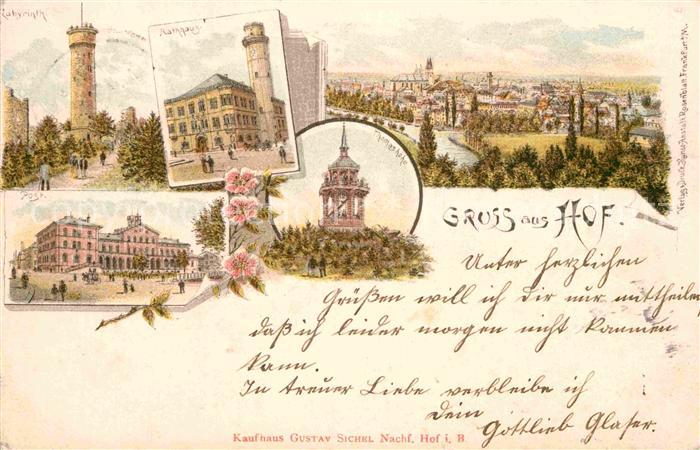 Labyrinth
Rathhaus
Post.
GRUSS aus HOF.
Unter herzlichen
Grüßen will ich dir nur mittheilen
daß ich leider morgen nicht kommen
kann.
In treuer Liebe verbleibe ich
Dein
Gottlieb Glaser.
Kaufhaus GUSTAV SICHEL Nachf. Hof i. B
Verlag Rosenblatt Frankfurt a/M.